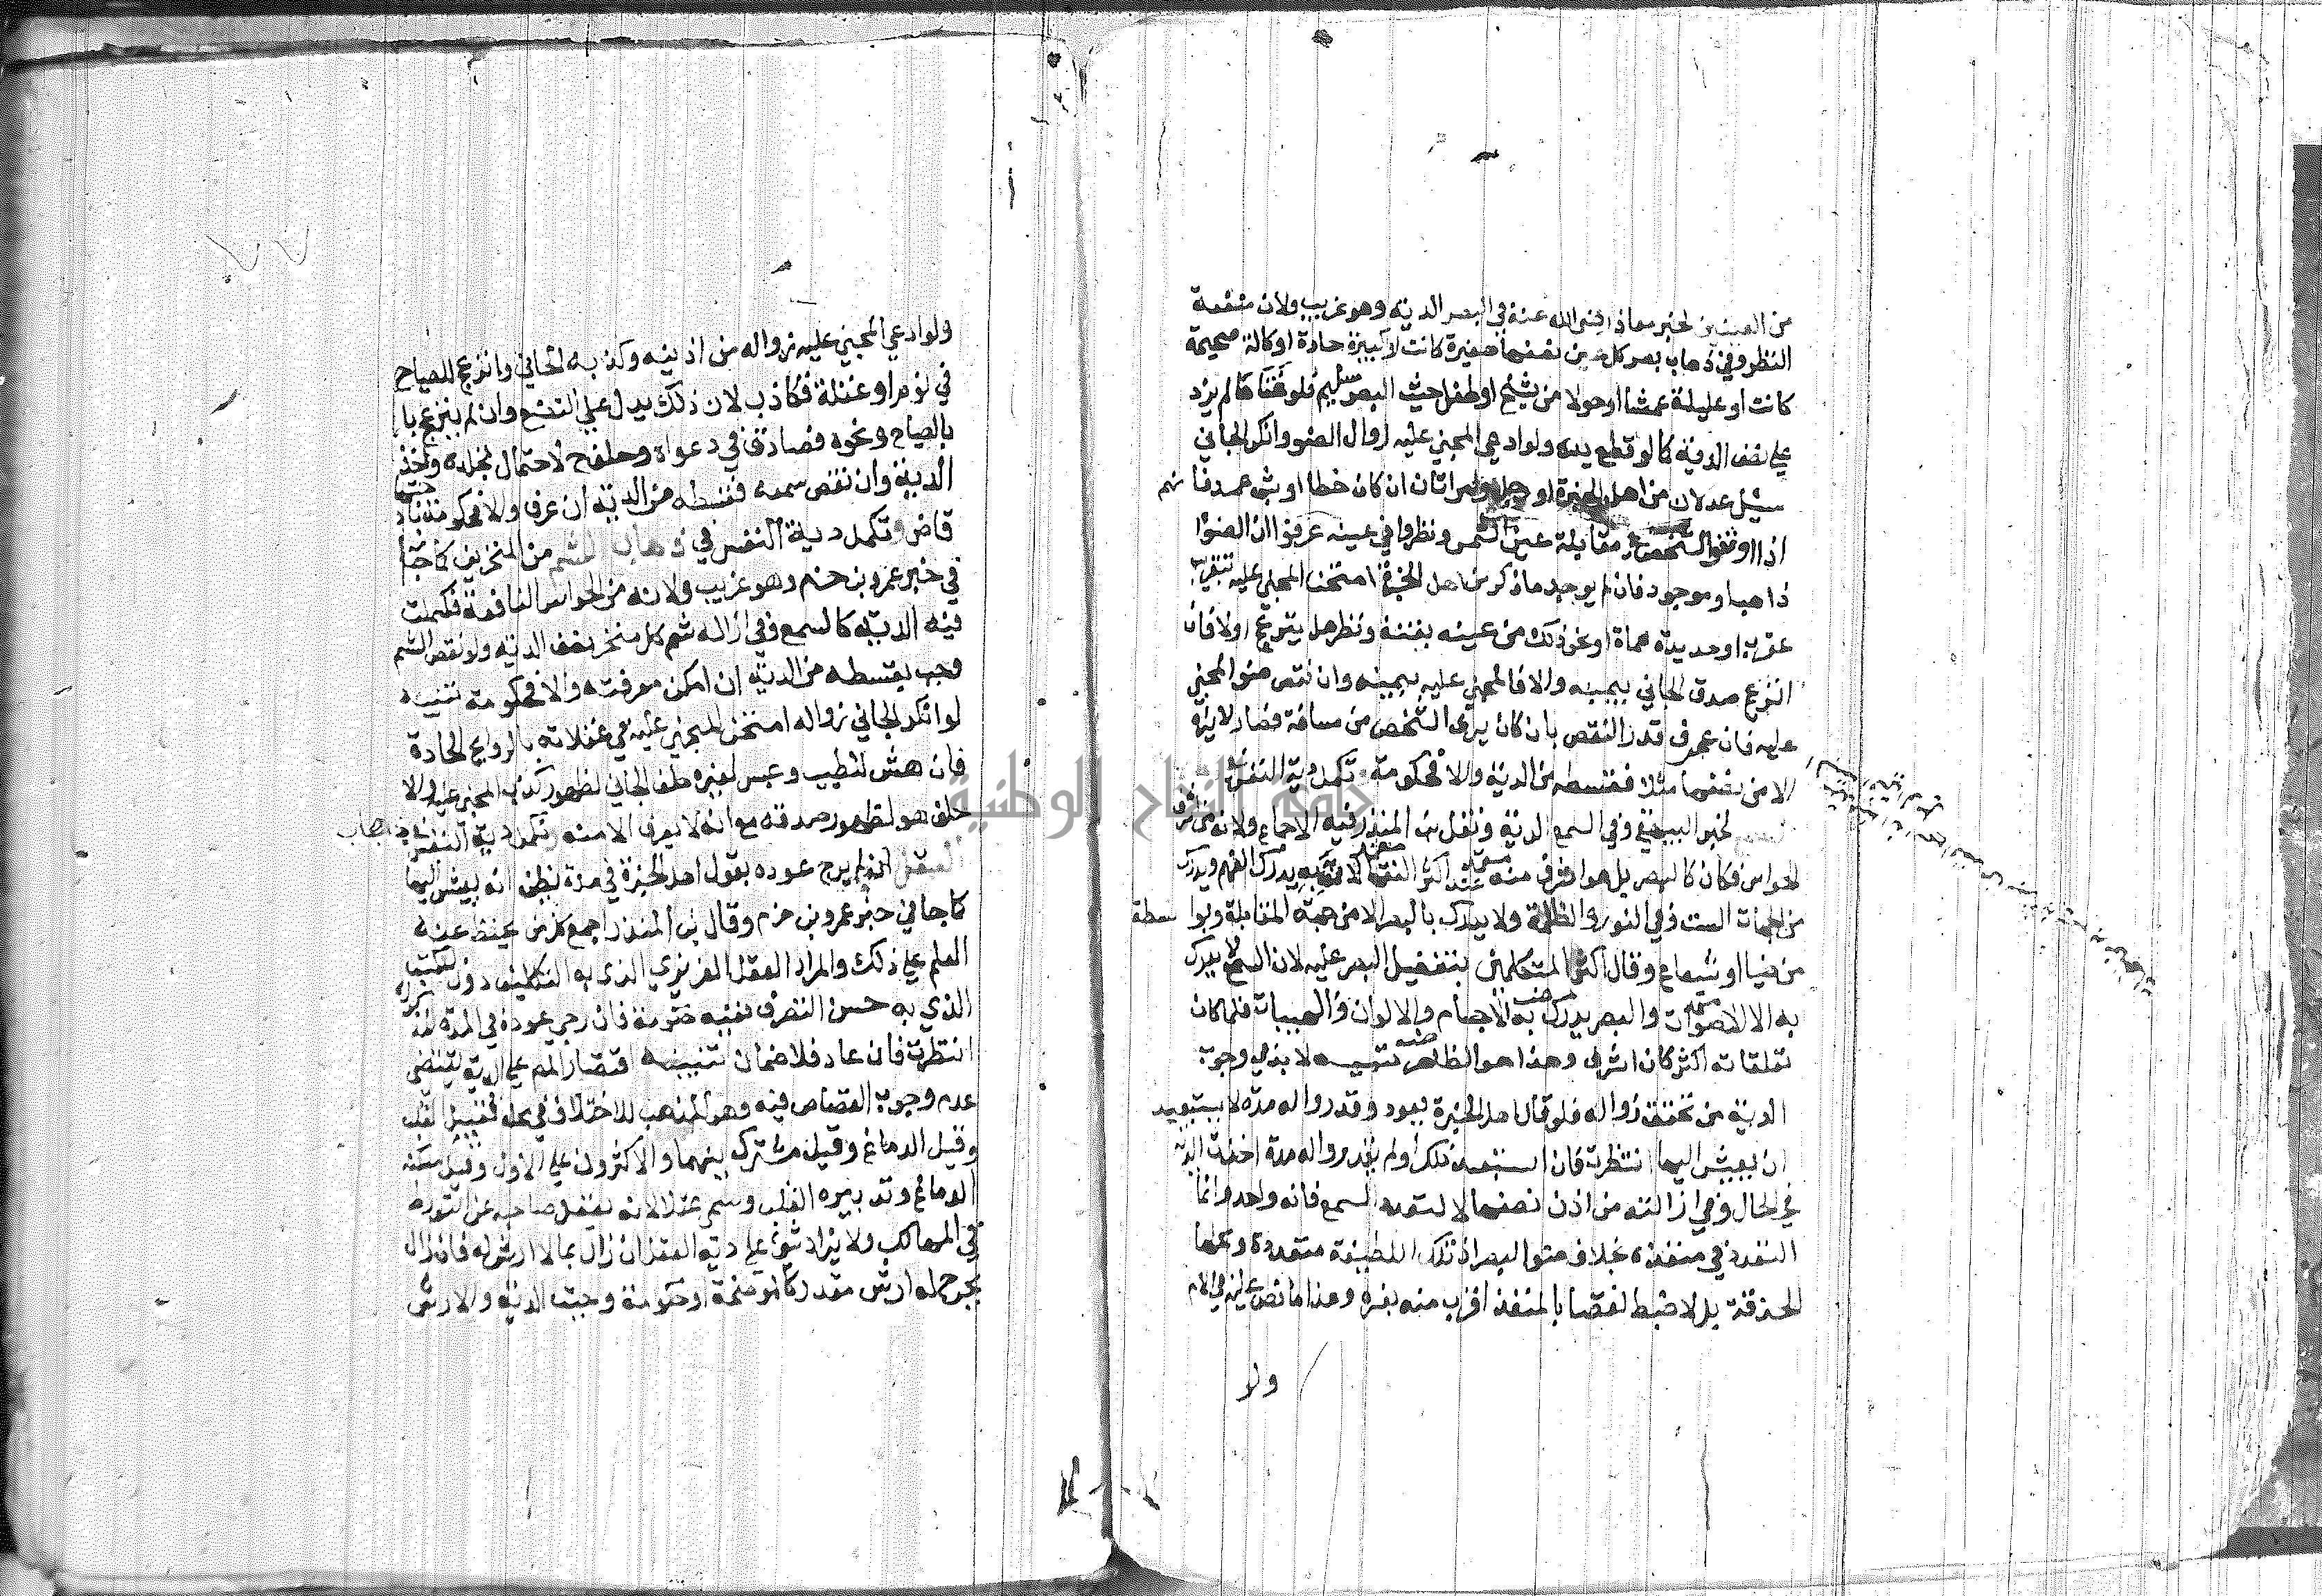 من العينين لخبر معاذ رضي الله عنه في البصر الدية وهو غريب ولان منفعة
النظر وفي ذهاب بصر كل عين نصفها صغيرة كانت او كبيرة حادة او كالة صحيحة
كانت او عليلة عمشا او حولا من شيخ او طفل حيث البصر سليم فلو فقاها لم يزد
على نصف الدية كما لو قطع يده ولو ادعى المجني عليه زوال الضو وانكر الجاني
سئل عدلان من اهل الخبرة او رجل وامراتان ان كان خطا او شبه عمد فانهم
اذا اوقفوا الشخص في مقابلة عين الشمس ونظروا في عينه عرفوا ان الضوا
ذاهب او موجود فان لم يوجد ما ذكر من اهل الخبرة امتحن المجني عليه بتقريب
عقرب او حديدة محماة او نحو ذلك من عينه بغتة ونظر هل ينزعج او لا فان
انزعج صدق الجاني بيمينه والا فالمجني عليه بيمينه وان نقص ضوا المجني
عليه فان عرف قدر النقص بان كان يرى الشخص من مسافة فصار لا يراه
الا من نصفها مثلا فقسطه من الدية والا فحكومة وتكمل دية النفس في
لخبر البيهقي وفي السمع الدية ونقل ابن المنذر فيه الاجماع ولانه من اشرف
الحواس فكان كالبصر بل هو اشرف منه عند اكثر الفقها لانه به يدرك الفهم ويدرك
من الجهات الست وفي النور والظلمة ولا يدرك بالبصر الا من جهة المقابلة وبواسطة
من ضيا او شعاع وقال اكثر المتكلمين بتفضيل البصر عليه لان السمع لا يدرك
به الا الاصوات والبصر يدرك به الاجسام والالوان والهيئات فلما كان
تعلقاته اكثر كان اشرف وهذا هو الظاهر تنبيه لا بد في وجوب
الدية من تحقق زواله فلو قال اهل الخبرة يعود وقدروا له مدة لا يستبعد
ان يعيش اليها انتظرت فان استبعد ذلك او لم يقدروا له مدة اخذت الدية
في الحال وفي ازالته من اذن نصفها لا لتعدد السمع فانه واحد وانما
التعدد في منفذه بخلاف ضوا البصر اذ تلك اللطيفة متعددة ومحلها
الحدقة بل لا ضبط نقصا بالمنفذ اقرب منه بغيره وهذا ما نص عليه في الام
ولا
ولو ادعى المجني عليه زواله من اذنيه وكذبه الجاني وانزعج للصياح
في نوم او غفلة فكاذب لان ذلك يدل على التصنع وان لم ينزعج با
بالصياح ونحوه فصادق في دعواه وحلف لاحتمال تجلده واخذ
الدية وان نقص سمعه فقسطه من الدية ان عرف والا فحكومة باجتهاد
قاض وتكمل دية النفس في ذهاب الشم من المنخرين كما جا
في خبر عمرو بن حزم وهو غريب ولانه من الحواس النافعة فكملت
فيه الدية كالسمع وفي ازالة شم كل منخر نصف الدية ولو نقص الشم
وجب بقسطه من الدية ان امكن معرفته والا فحكومة تنبيه
لو انكر الجاني زواله امتحن المجني عليه في غفلاته بالروايح الحادة
فان هش لطيب وعبس لغيره حلف الجاني لظهور كذب المجني عليه والا
حلف هو لظهور صدقه مع انه لا يعرف الا منه وتكمل دية النفس في ذهاب
العقل ان لم يرج عوده بقول اهل الخبرة في مدة يظن انه يعيش اليها
كما جا في خبر عمرو بن حزم وقال ابن المنذر اجمع كل من يحفظ عنه
العلم على ذلك والمراد العقل الغريزي الذي به التكليف دون المكتسب
الذي به حسن التصرف ففيه حكومة فان رجي عوده في المدة المذكورة
انتظرت فان عاد فلا ضمان تنبيه اقتصار المص على الدية يقتضي
عدم وجوب القصاص فيه وهو المذهب للاختلاف في محله فقيل القلب
وقيل الدماغ وقيل مشترك بينهما والاكثرون على الاول وقيل مسكنه
الدماغ وتدبيره القلب وسمي عقلا لانه يعقل صاحبه عن التورط
في المهالك ولا يزاد شي على دية العقل ان زال بما لا ارش له فان زال
بجرح له ارش مقدر كالموضحة او حكومة وجبت الدية والارش